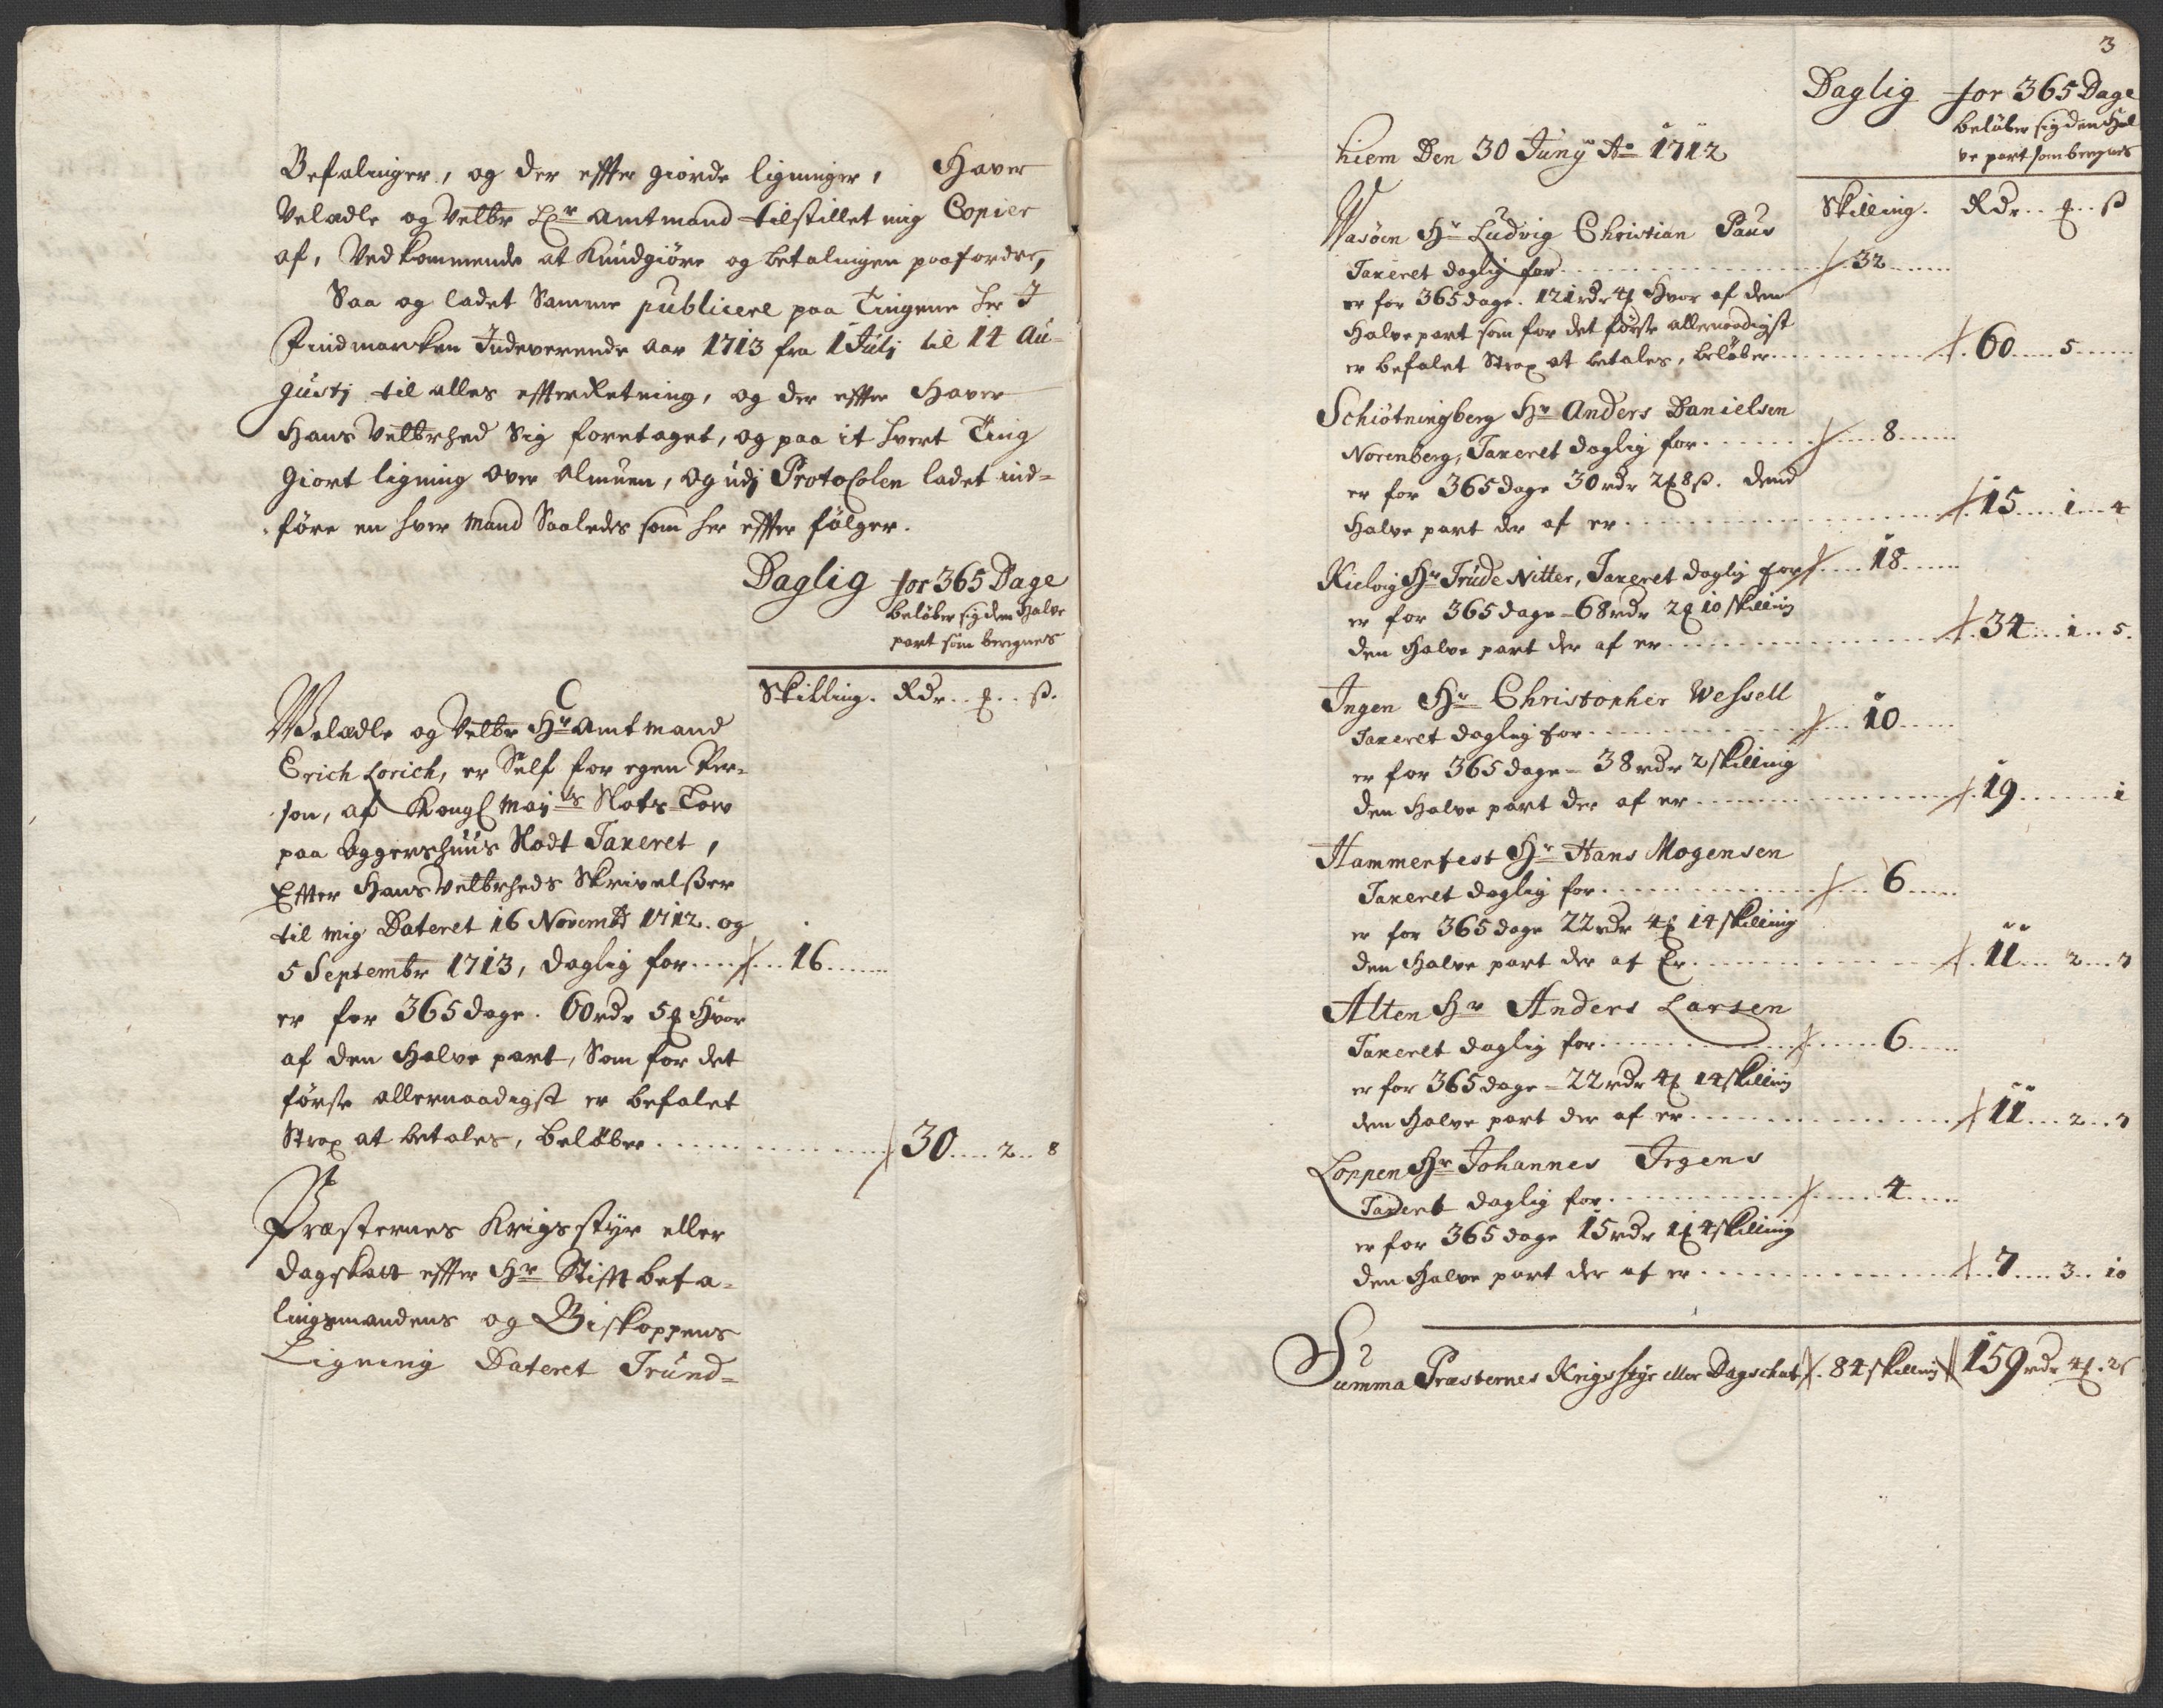 Befalinger, og der effter giorde ligninger, Haver
Velædle og Velbr Hr Amtmand tilstillet mig Copier
af, Vedkommende at Kundgiøre og betalingen paafordre,
Saa og ladet Samme publicere paa Tingene her J
Findmarken Indeverende Aar 1713 fra 1 Julj til 14 Au-
gustj til alles effterRetning, og der effter Haver
Hans Velbrhed Sig foretaget, og paa it hvert Ting
Giort ligning over Almuen, og udj Protocolen ladet ind-
føre en hver Mand Saaledes som her effter følger.
Daglig for 365 Dage
beløber sig den Halve
part som beregnes
Skilling. Rdr . . ₰ . . ß.
C
Velædle og Velbr Hr Amtmand
Erich Lorich, er Self for egen Per-
son, af Kongl May:ts Slots Low
paa Aggershuus Slodt Taxeret,
Effter Hans Velbrheds Skrivelßer
til mig Dateret 16 Novembr 1712. og
5 Septembr 1713, daglig for .... 16 ....
er for 365 dage. 60 rdr 5 ₰ Hvor
af den Halve part, Som for det
første allernaadigst er befalet
Strax at betales, beløber .... 30 .... 2 .. 8
Præsternes Krigsstyr eller
dagskatt effter Hr Stifftbefa-
lingsmandens og Biskoppens
Ligning Dateret Trund-
3
Daglig for 365 Dage
beløber sig den Hal
ve part som beregnes
hiem Den 30 Junÿ Ao 1712
Skilling. Rdr . . ₰ . . ß
Wasöen Hr Ludvig Christian Paus
Taxeret daglig for .... 32 ....
er for 365 dage. 121 rdr 4 ₰ Hvor af den
Halve part som for det første allernaadigst
er befalet Strax at betales, beløber .... 60 .... 5 ....
Schiötningberg Hr Anders Danielsen
Norenberg, Taxeret daglig for .... 8 ....
er for 365 dage 30 rdr 2 ₰ 8 ß. dend
Halve part der af er .... 15 .... 1 .. 4
Kielvig Hr Trude Nitter, Taxeret daglig for .... 18 ....
er for 365 dage - 68 rdr 2 ₰ 10 skilling
den Halve part der af er .... 34 .... 1 .. 5.
Ingen Hr Christopher Wessell
Taxeret daglig for .... 10 ....
er for 365 dage - 38 rdr 2 skilling
den Halve part der af er .... 19 .... 1
Hammerfest Hr Hans Mogensen
Taxeret daglig for .... 6 ....
er for 365 dage 22 rdr 4 ₰ 14 skilling
den Halve part der af Er .... 11 .... 2 .. 7
Alten Hr Anders Larsen
Taxeret daglig for .... 6 ....
er for 365 dage - 22 rdr 4 ₰ 14 skilling
den Halve part der af er .... 11 .... 2 .. 7
Loppen Hr Johannes Irgens
Taxeret daglig for .... 4 ....
er for 365 dage 15 rdr 1 ₰ 4 skilling
den Halve part der af er .... 7 .... 3 .. 10
Summa Præsternes Krigsstyr eller Dagschat . 84 skilling 159 rdr 4 ₰ . 2 ß